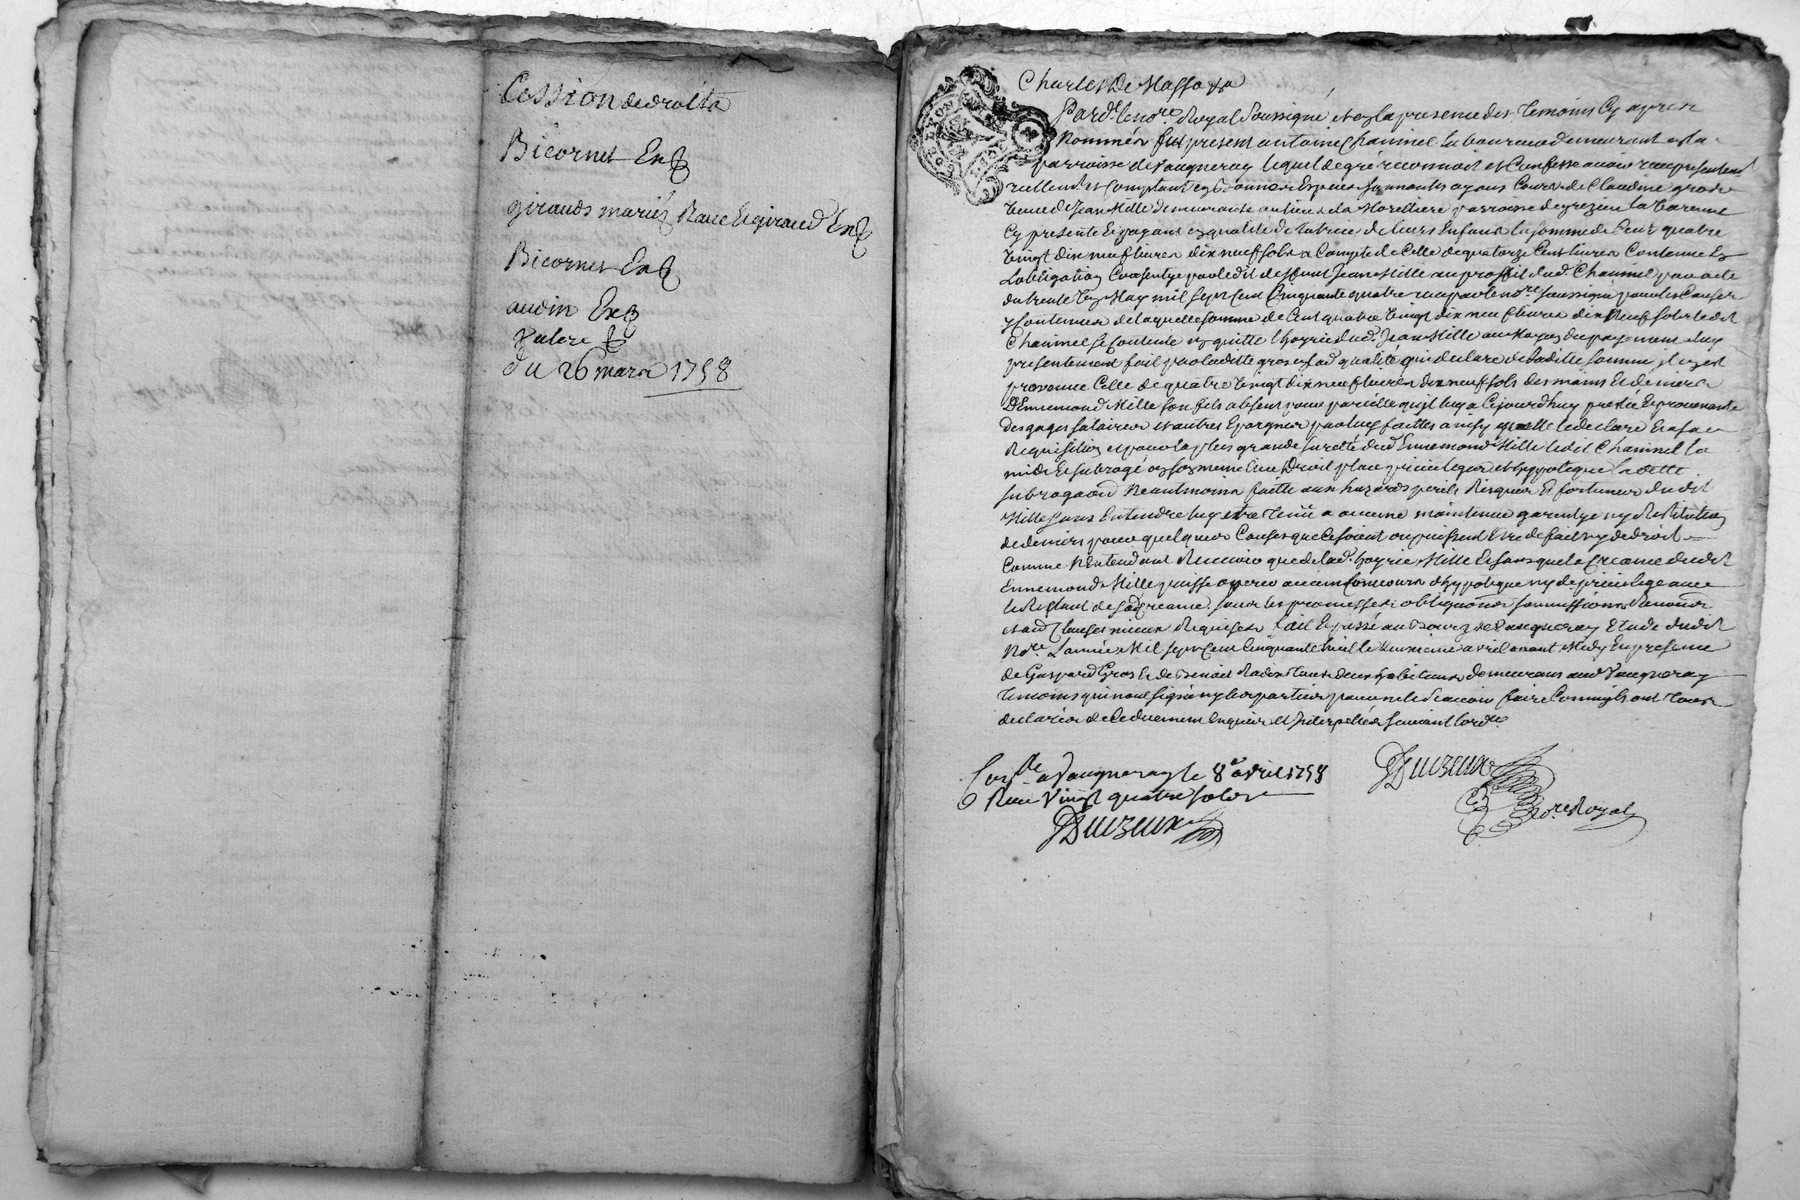 Cession de droits
Bicornet Exp
girauds mariés Raue Et giraud Exp
Bicornet Exp
audin Exp
du 26 mars 1758
Charles De Massara
Pard.t le no.re Royal Soussigné et en la presence des Temoins Cy apres
Nommés fut present antoine Chamiel laboureur demeurant en la
parroisse de Vaugneray lequel de gré reconnoit et Confesse avoir receu presentem.t
reellement et Comptant en bonnes Especes sonnantes ayans Cours de Claudine gros
Veuve de Jean Mille demeurante au lieu de la Morelliere parroisse de grezieu la Varenne
Cy presente Et payant en qualité de tutrice de leurs Enfans la somme de Cent quatre
Vingt dix neuf livres dix neuf sols a Compte de Celle de quatorze Cent livres Contenue En
L'obligation Consentye par ledit deffunt Jean Mille au proffit dud. Chamiel par acte
du trente Un May mil sept Cent Cinquante quatre receu par le no.re soussigné pour les Causes
y Contenues de laquelle somme de Cent quatre Vingt dix neuf livres dix Neuf sols ledit
Chamiel se Contente en quitte l'hoyrie dud. Jean Mille au Moyen du payement
presentement fait par laditte gros esd. qualité qui declare de laditte somme il y en est
provenue Celle de quatre Vingt dix neuf livres dix neuf sols des mains Et deniers
D'Ennemond Mille son fils absent pour pareille qu'il luy a Cejourd'huy pretée Et provenante
des gages salaires et autres Epargnes par luy faittes ainsy qu'elle le declare En sa
Requisition et pour la plus grande sureté dud. Ennemond Mille ledit Chamiel la
mis Et subrogé en son meme lieu Droit place privilege et hypoteque laditte
subrogaon Neantmoins faitte aux hazards perils Risques Et fortunes dudit
Mille sans Entendre luy etre Tenu a aucune maintenue garentye ny Restitution
de deniers pour quelques Causes que Ce soient ou puissent Etre de fait ny de droit
Comme N'entendant Recevoir que de lad. hoyrie Mille Et sans que la Creance dudit
Ennemond Mille puisse operer aucun Concours d'hypoteque ny de privilege avec
le Restant de sad. Creance. sous les promesses obligaons soumissions Renoñons
et aud. Clauses mieux Requises fait Et passé au bourg de Vaugneray Etude dudit
No.re L'année Mil sept Cent Cinquante huit le deuxieme avril avant Midy En presence
de Gaspard Gros Et de Benoit Radix tous deux habitans demeurans aud. Vaugneray
Temoins qui n'ont signé ny les parties pour ne le sçavoir faire Comme ils ont Tous
declarés de Ce duement Enquis Et Interpellés suivant l'ord.ce
Con.lé a Vaugneray le 8.e avril 1758
Receu Vingt quatre sols
Duzeux
Duzeux
No.re Royal